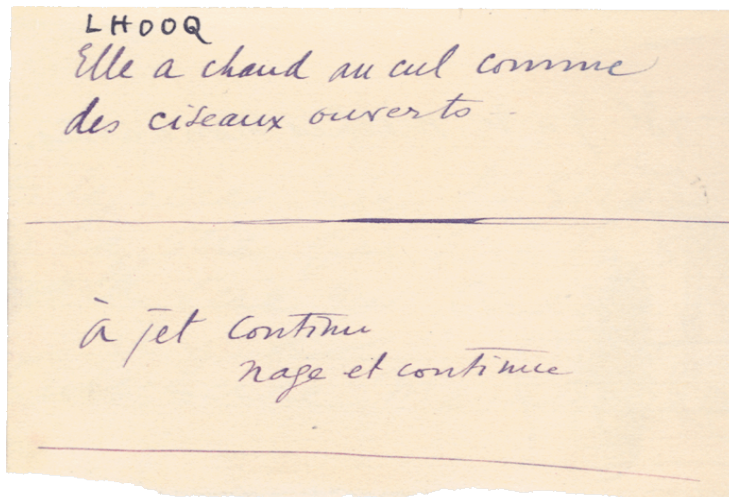 LHOOQ
Elle a chaud au cul comme
des ciseaux ouverts
à jet continu
nage et continue